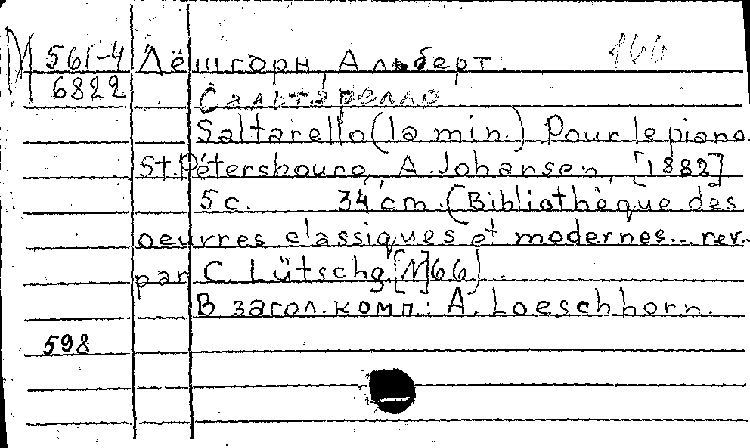 М 561-4 Лёшгорн, Альберт. 166
6822 Сальтарелло
Saltarello (la min.) Pour le piano
St.Pétersbourg, A. Johansen, [1882]
5 с. 34 cm. (Bibliothèque des
oeuvres classiques et modernes... rev.
par C. Lütschg. [N]66).
В загол. комп.: A. Loeschhorn.
598